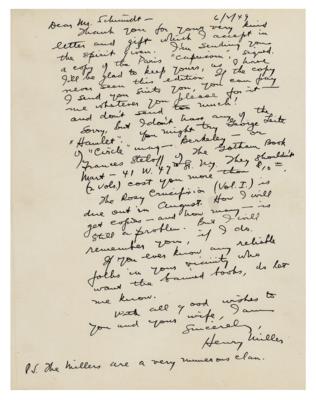 6/5/49
Dear Mr. Schmidt —
Thank you for your very kind
letter and gift which I accept in
the spirit given. I'm sending you
a copy of the Paris "Capricorn", signed.
I'll be glad to keep yours, as I have
never seen this edition. If the copy
I send you suits you, you can pay
me whatever you please for it —
and don't send too much!
Sorry, but I don't have any of the
"Hamlet". You might try George Leite
of "Circle" mag — Berkeley — or
Frances Steloff of The Gotham Book
Mart — 41 W. 47 St. N.Y. They shouldn't
(2 Vols) cost you more than
The Rosy Crucifixion (Vol. I) is
due out in August. How I will
get copies — and how many — is
still a problem. But I will
remember you, if I do.
If you ever know any reliable
folks in your vicinity who
want the banned books, do let
me know.
With all good wishes to
you and your wife, I am
Sincerely,
Henry Miller
P.S. The Millers are a very numerous clan.